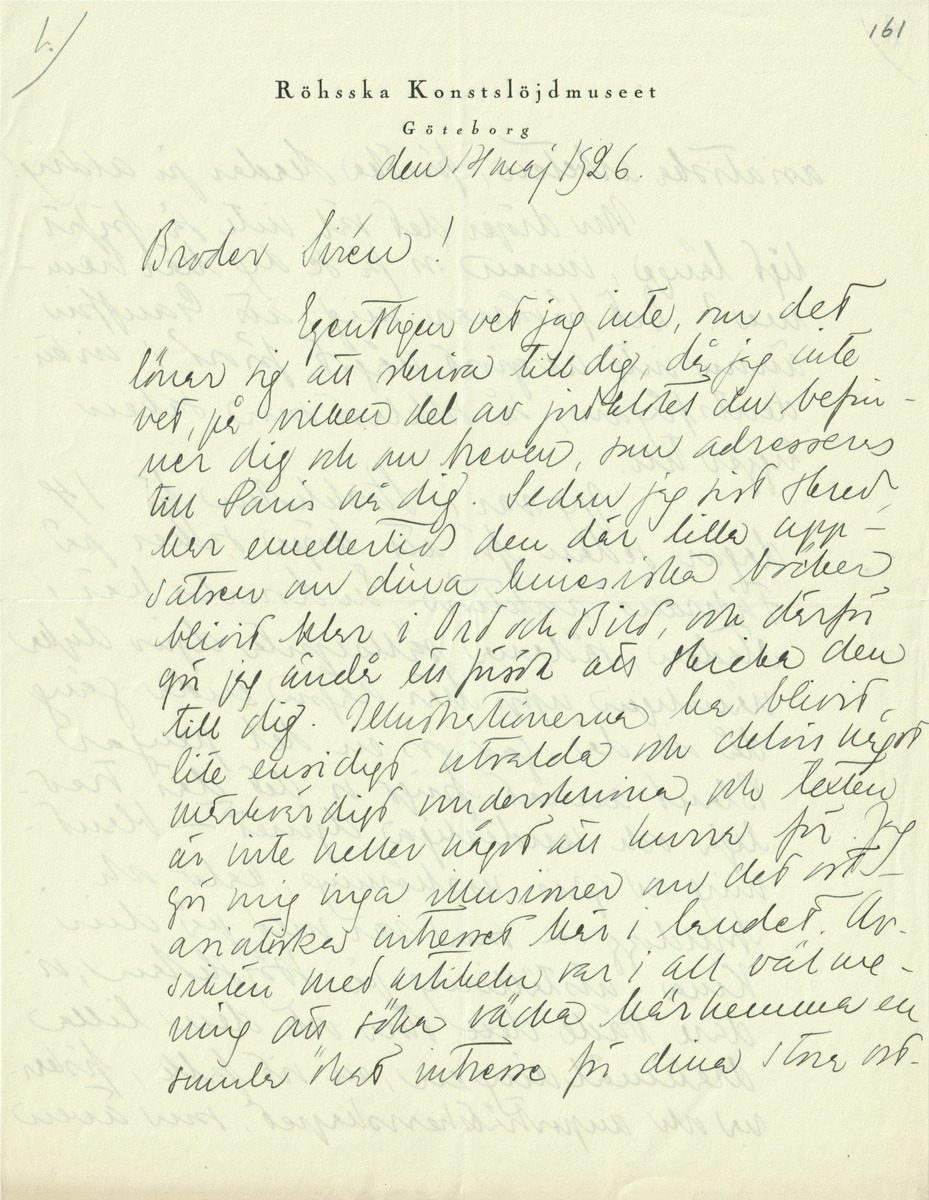 1.)
161
Röhsska Konstslöjdmuseet
Göteborg
den 14 maj 1926.
Broder Sirén!
Egentligen vet jag inte, om det
lönar sig att skriva till dig, då jag inte
vet, på vilken del av jordklotet du befin-
ner dig och om breven, som adresseras
till Paris nå dig. Sedan jag sist skrev,
har emellertid den där lilla upp-
satsen om dina kinesiska böcker
blivit klar i Ord och Bild, och därför
gör jag ändå ett försök att skicka den
till dig. Illustrationerna ha blivit
lite ensidigt utvalda och delvis något
märkvärdigt underskrivna, och texten
är inte heller något att hurra för. Jag
gör mig inga illusioner om det ost-
asiatiska intresset här i landet. Av-
sikten med artikeln var i all välme-
ning att söka väcka härhemma en
smula ökat intresse för dina stora ost-